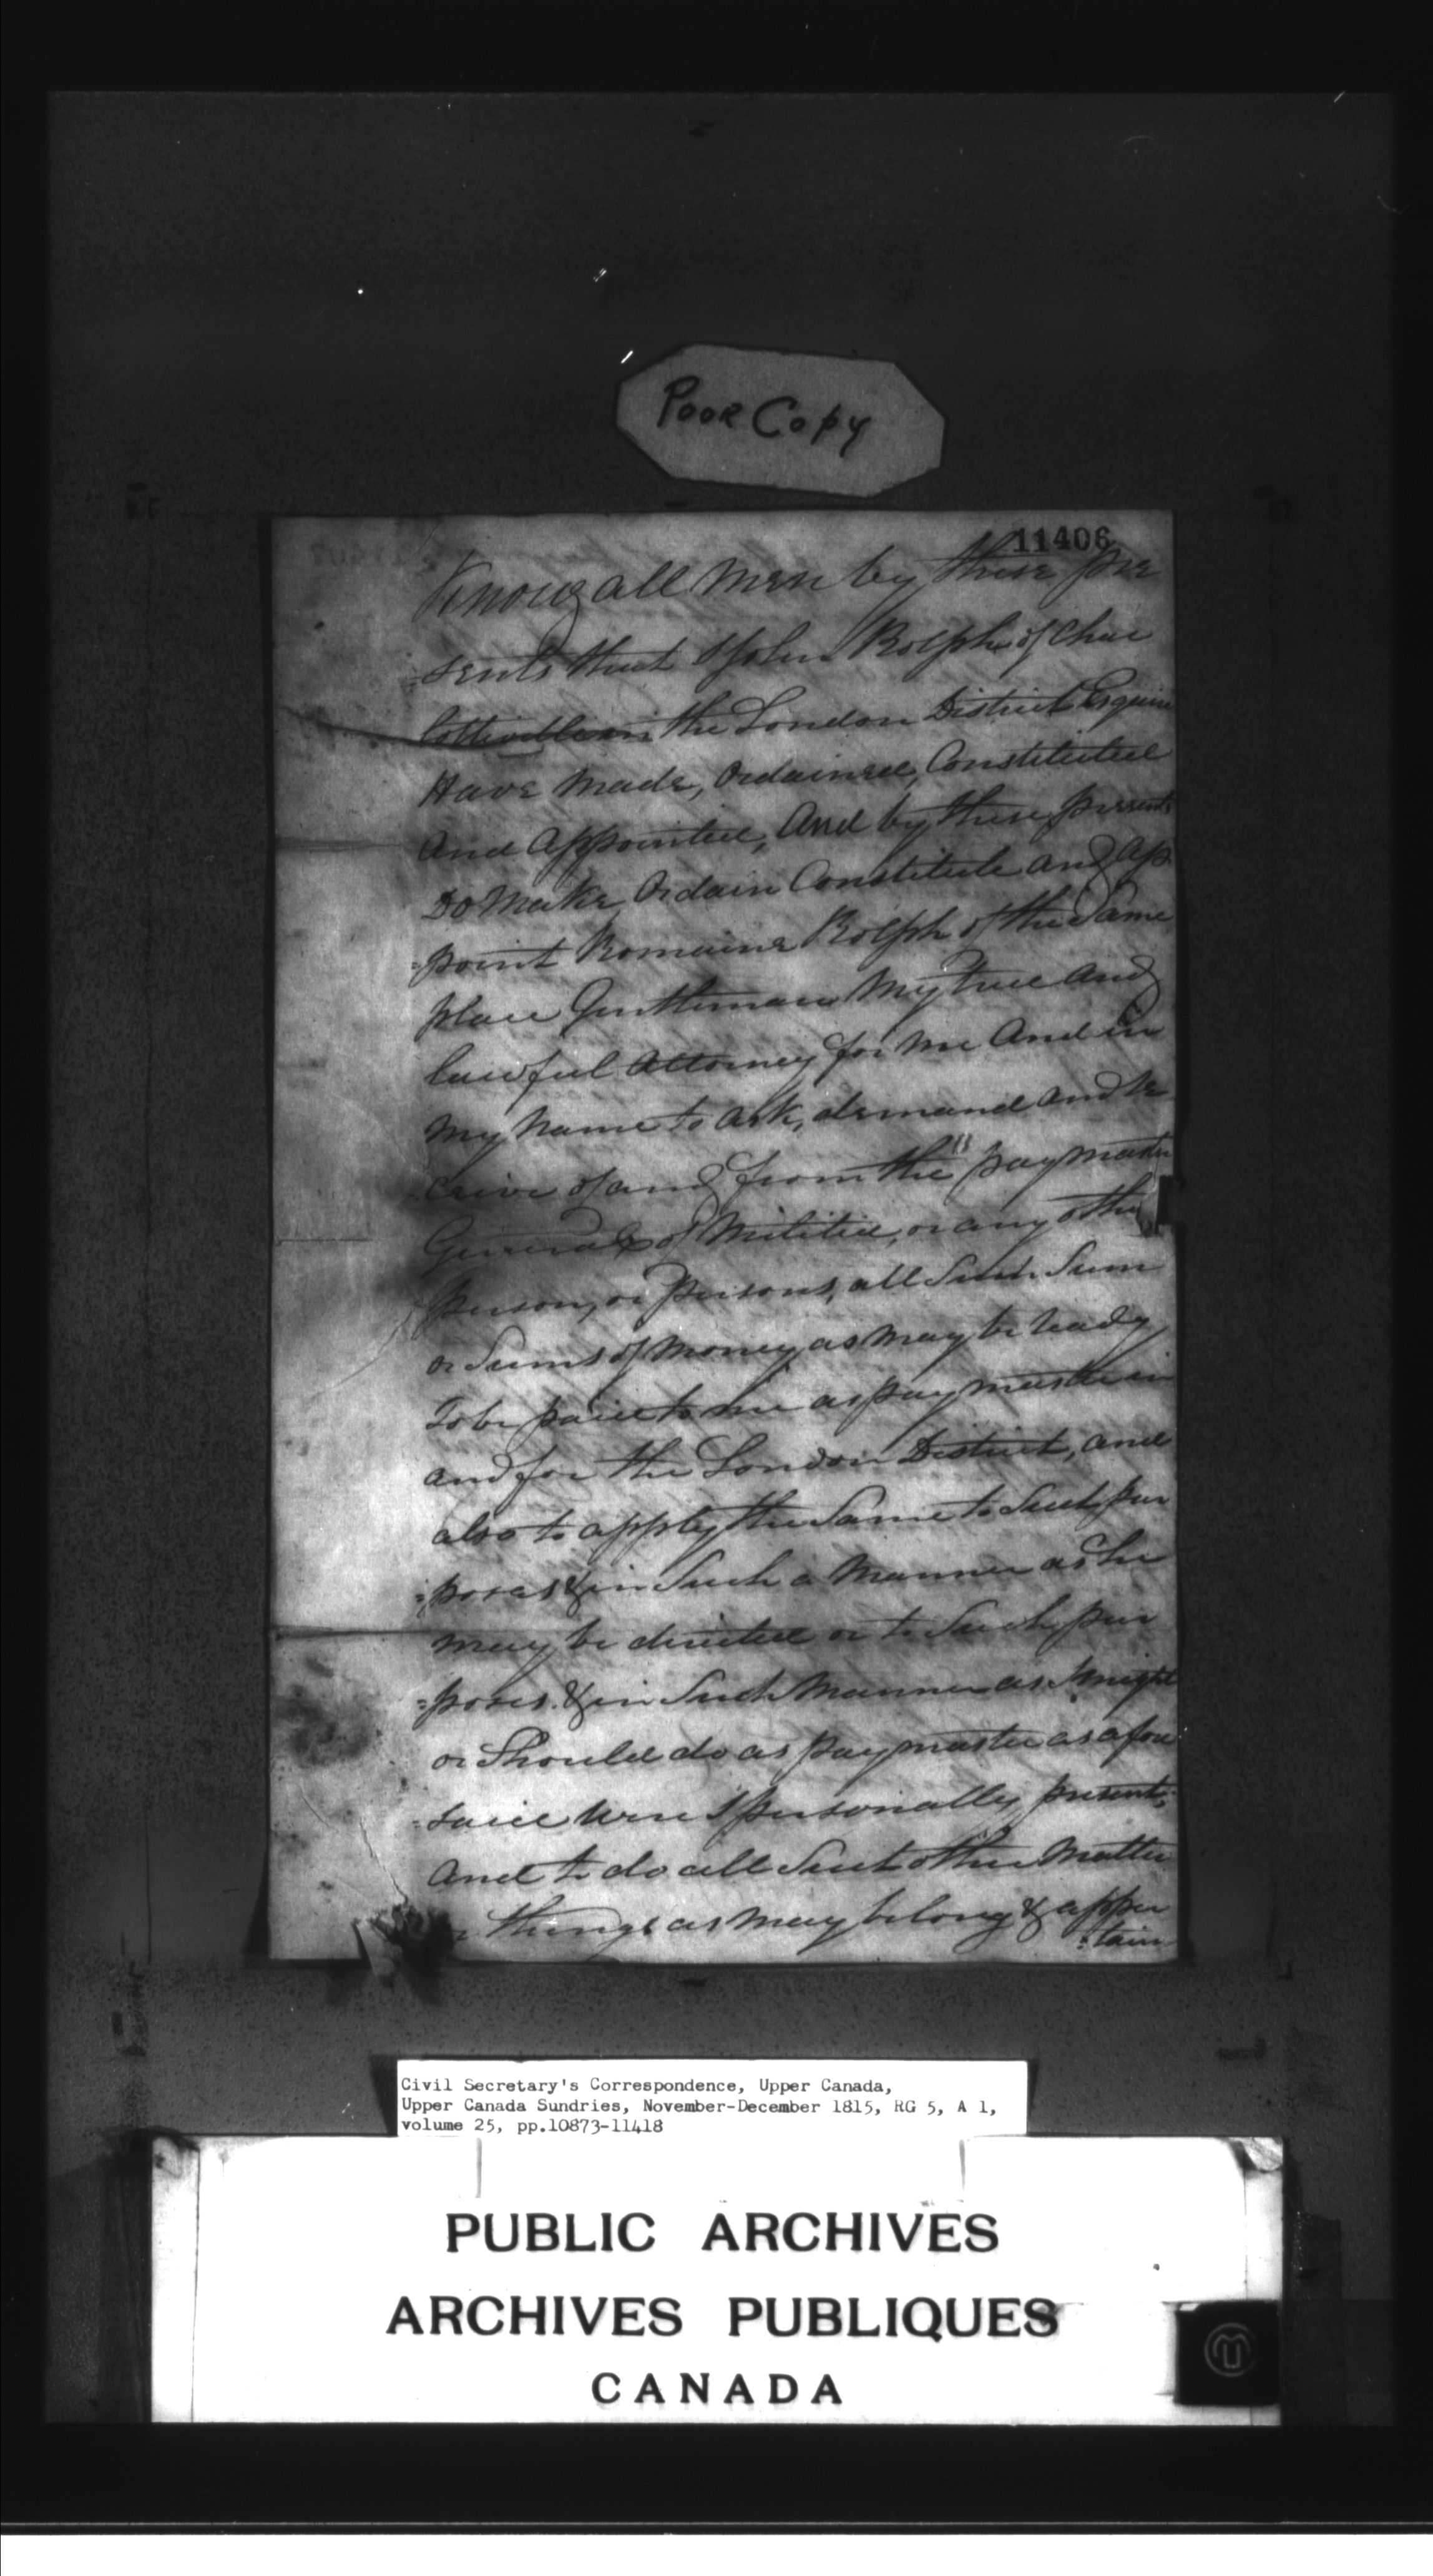 Poor Copy
11406
Know all men by these pre
=sents that I John Rolph of Char
lotteville in the London District Esquire
Have made, Ordained, Constituted
And Appointed, And by these presents
Do Make Ordain Constitute and Ap
=point Romaine Rolph of the Same
place Gentleman My true and
lawful Attorney for me And in
my Name to ask, demand and re
=ceive of and from the paymaster
General of Militia, or any other
person, or persons, all Such Sum
or Sums of Money as may be ready
To be paid to me as paymaster in
and for the London District, and
also to apply the Same to Such pur
=poses & in Such a Manner as he
may be directed or to Such pur
=poses & in Such Manner as I might
or Should do as paymaster as afore
=said were I personally present,
And to do all Such other Matter
or things as may belong & apper
=tain
Civil Secretary's Correspondence, Upper Canada,
Upper Canada Sundries, November-December 1815, RG 5, A 1,
volume 25, pp.10873-11418
PUBLIC ARCHIVES
ARCHIVES PUBLIQUES
CANADA